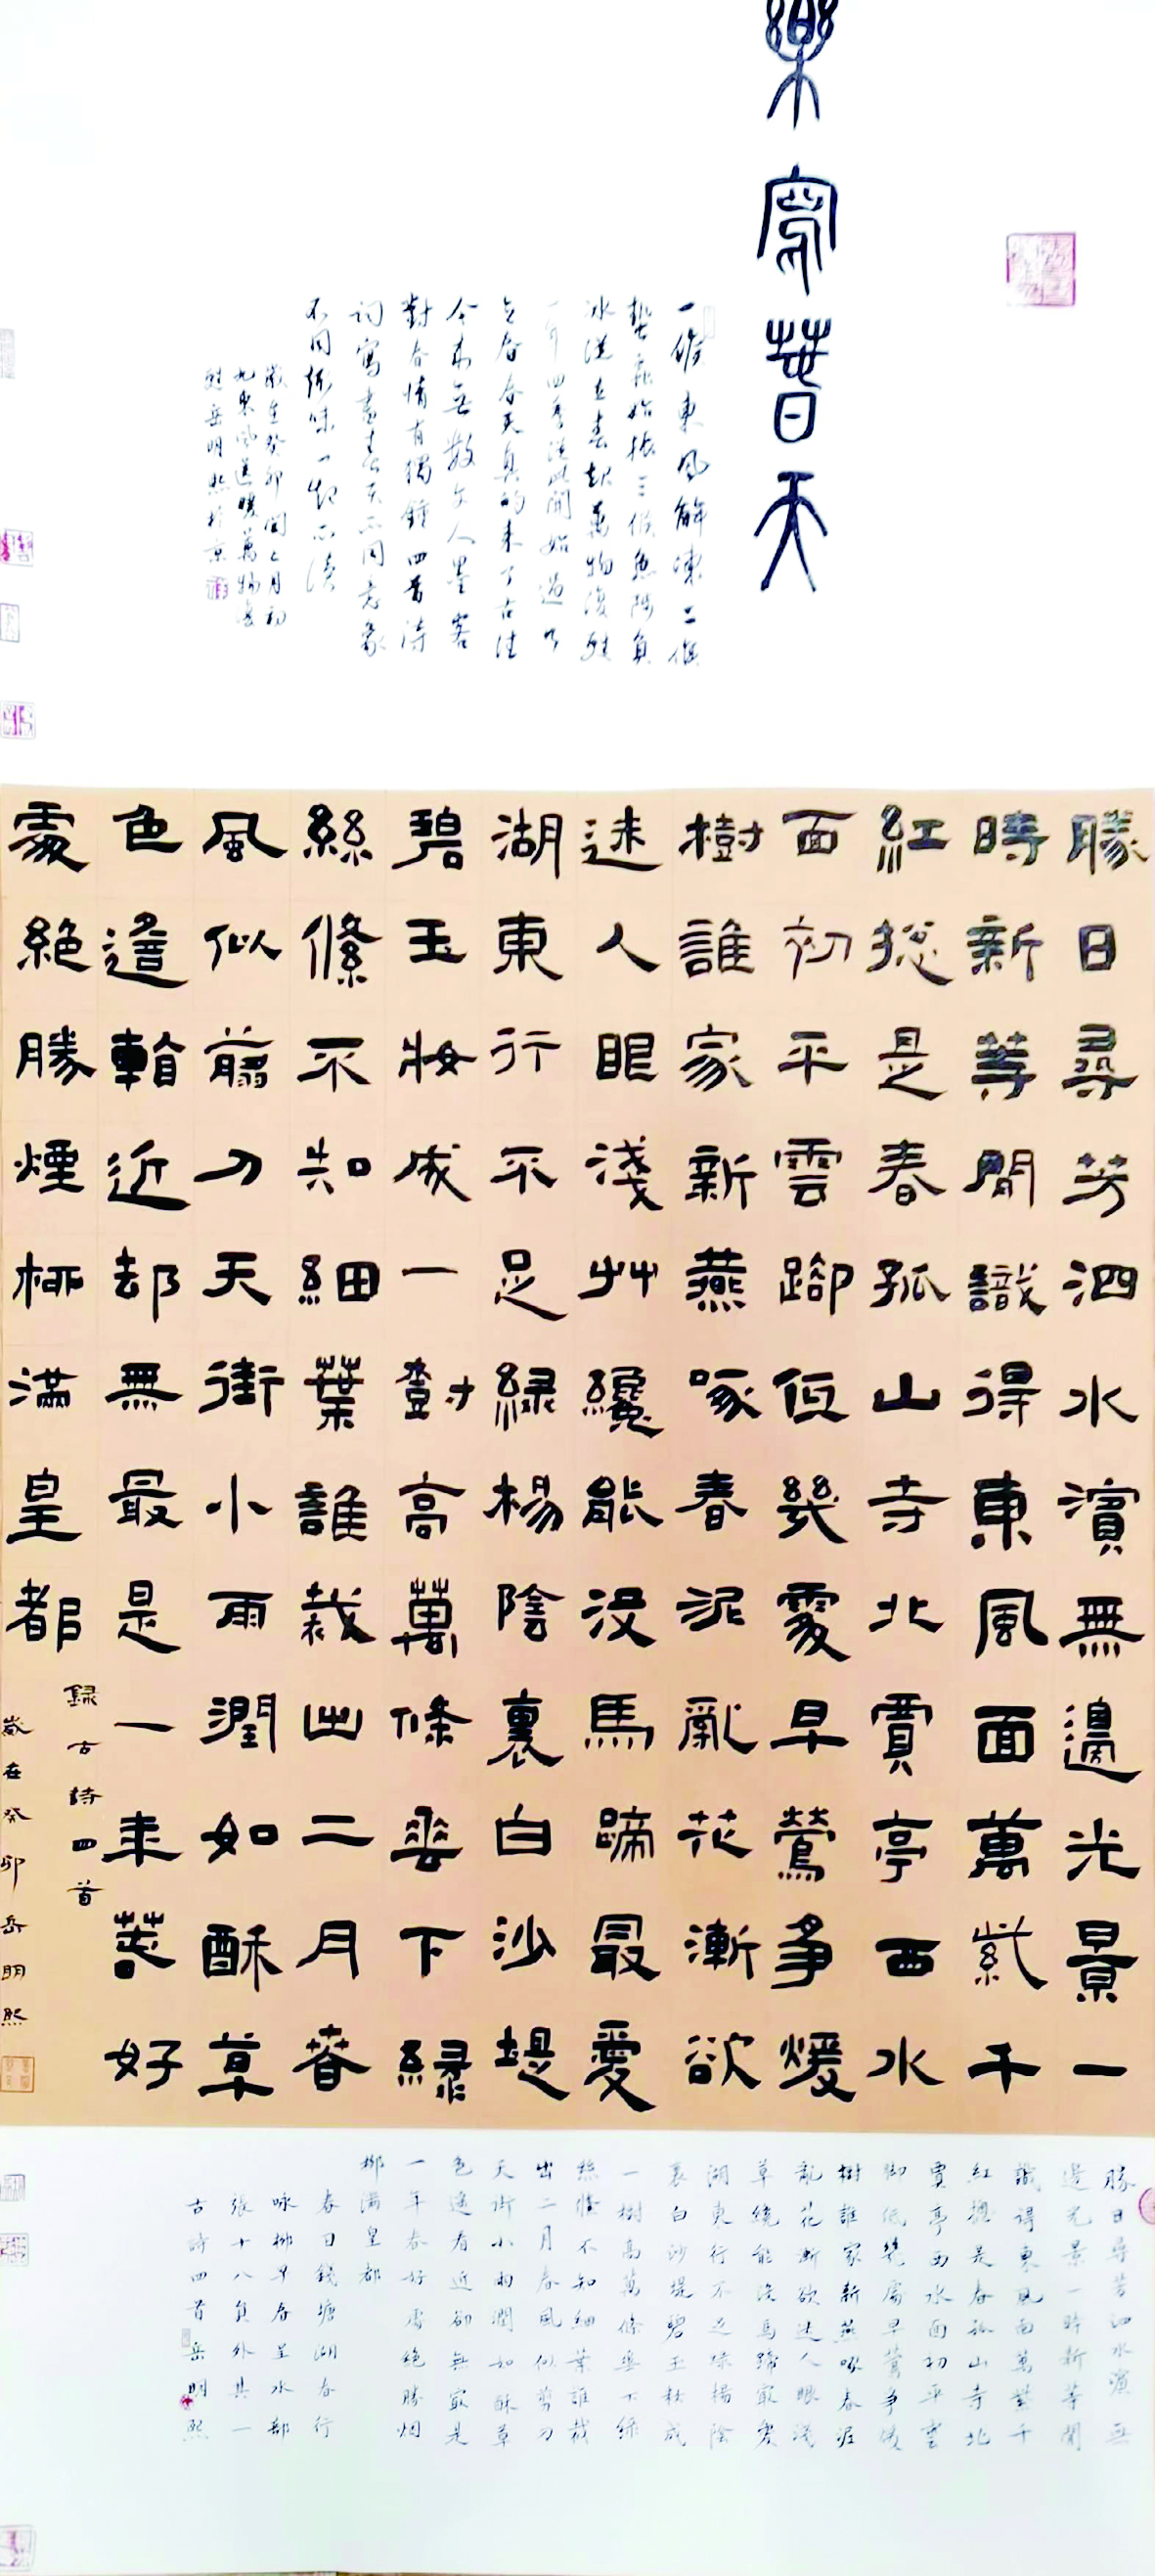 樂寫春天
一候東風解凍二候
蟄蟲始振三候魚陟負
冰從立春起萬物復甦
一年四季從此開始過了
立春春天真的來了古往
今來無數文人墨客
對春情有獨鍾四首詩
詞寫盡春天不同意象
不同韻味一起品讀
歲在癸卯閏二月初
九東風送暖萬物復
甦岳明熙於京
勝日尋芳泗水濱無邊光景一
時新等閒識得東風面萬紫千
紅捴是春孤山寺北賈亭西水
面初平雲腳低幾處早鶯爭煖
樹誰家新燕啄春泥亂花漸欲
迷人眼淺艸纔能沒馬蹄最愛
湖東行不足緑楊陰裏白沙堤
碧玉妝成一樹高萬條垂下緑
絲絛不知細葉誰裁出二月春
風似剪刀天街小雨潤如酥草
色遙看近却無最是一年春好
處絕勝煙柳滿皇都
録古詩四首
歲在癸卯岳明熙
勝日尋芳泗水濱無
邊光景一時新等閒
識得東風面萬紫千
紅總是春孤山寺北
賈亭西水面初平雲
腳低幾處早鶯爭暖
樹誰家新燕啄春泥
亂花漸欲迷人眼淺
草纔能沒馬蹄最愛
湖東行不足綠楊陰
裏白沙堤碧玉妝成
一樹高萬條垂下綠
絲絛不知細葉誰裁
出二月春風似剪刀
天街小雨潤如酥草
色遙看近卻無最是
一年春好處絕勝烟
柳滿皇都
春日錢塘湖春行
咏柳早春呈水部
張十八員外其一
古詩四首岳明熙